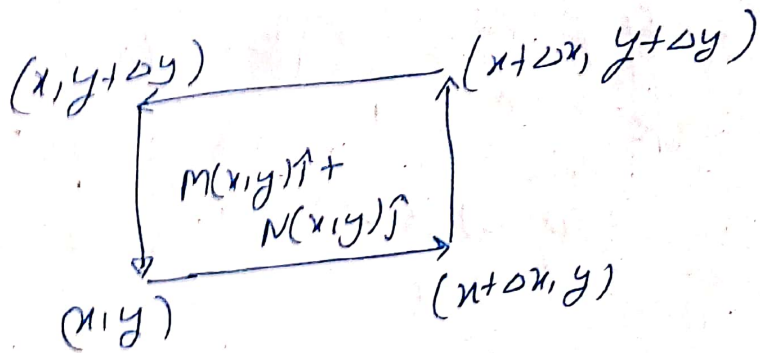 (x, y+Δy)
(x+Δx, y+Δy)
M(x,y)î +
N(x,y)ĵ
(x,y)
(x+Δx, y)